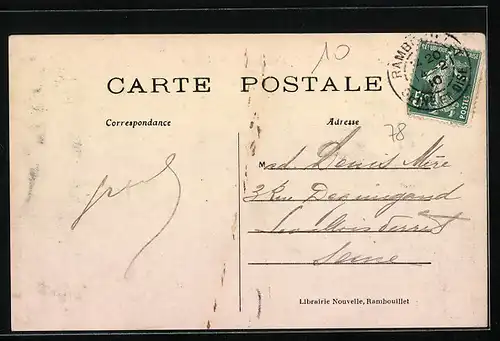 10
CARTE POSTALE
RAMBOUILLET
Correspondance
Adresse
78
Mad Denis Mère
3 Rue Deguingand
Levallois Perret
Seine
Librairie Nouvelle, Rambouillet